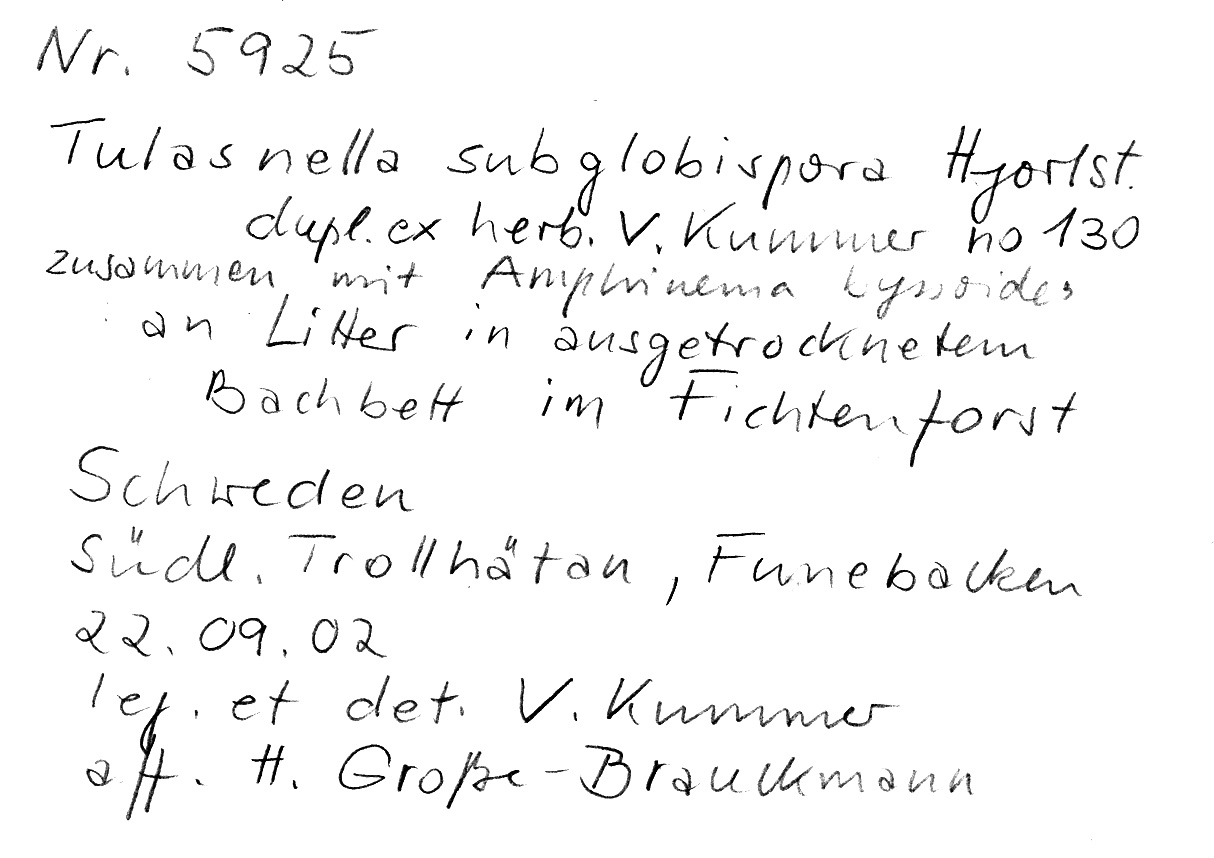 Nr. 5925
Tulasnella subglobispora Hjortst.
dupl. ex herb. V. Kummer no 130
zusammen mit Amphinema byssoides
an Litter in ausgetrocknetem
Bachbett im Fichtenforst
Schweden
Südl. Trollhätan, Funebacken
22.09.02
leg. et det. V. Kummer
aff. H. Große-Brauckmann